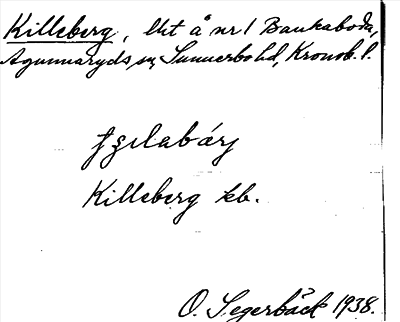 Killeberg, lht å nr 1 Bankaboda,
Agunnaryds sn, Sunnerbo hd, Kronob. l.
Killeberg kb.
O. Segerbäck 1938.